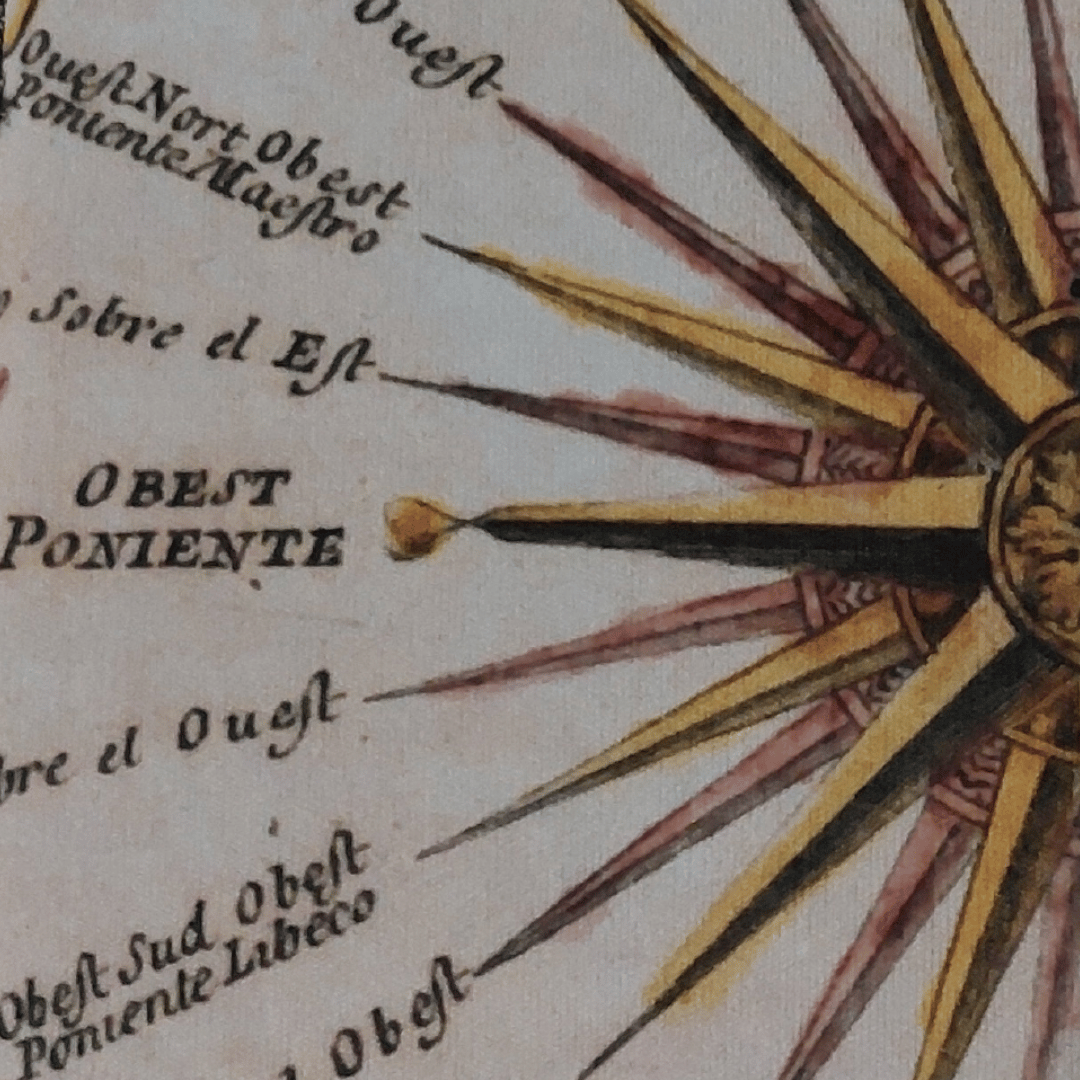 Ouest
Ouest Nort Obest
Poniente Maestro
Sobre el Est
OBEST
PONIENTE
bre el Ouest
Obest Sud Obest
Poniente Libeco
Obest